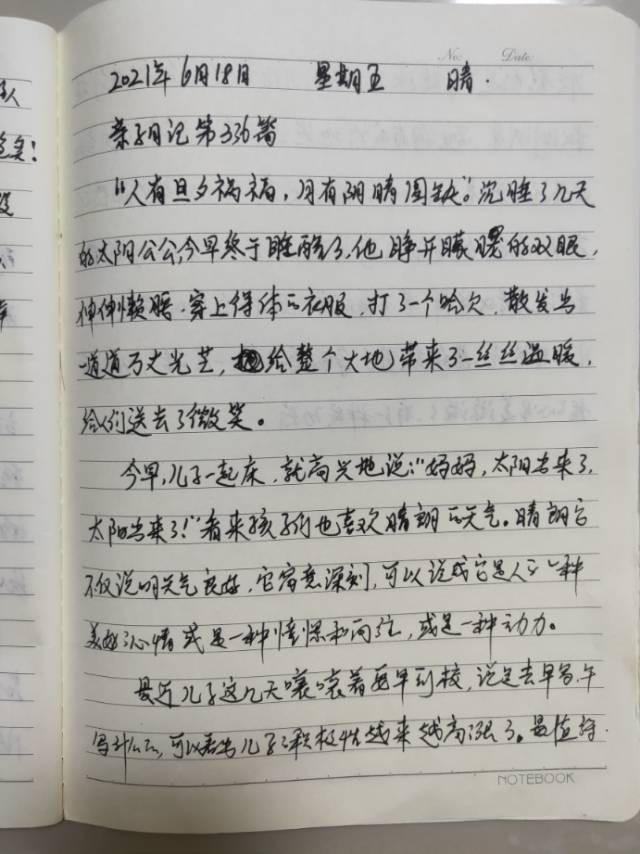 人
No:
Date:
2021年6月18日 星期五 晴.
亲子日记第336篇
“人有旦夕祸福，月有阴晴圆缺”。沉睡了几天
的太阳公公，今早终于睡醒了，他睁开朦胧的双眼，
伸伸懒腰，穿上得体的衣服，打了一个哈欠，散发出
一道道万丈光芒，给整个大地带来了一丝丝温暖，
给人们送去了微笑。
今早，儿子一起床，就高兴地说：“妈妈，太阳出来了，
太阳出来了！”看来孩子们也喜欢晴朗的天气。晴朗它
不仅说明天气良好，它寓意深刻，可以说成它是人们一种
美好心情或是一种憧憬和向往，或是一种动力。
最近儿子这几天嚷嚷着要早到校，说是去早写午
写什么的，可以看出儿子积极性越来越高涨了。最值得
NOTEBOOK